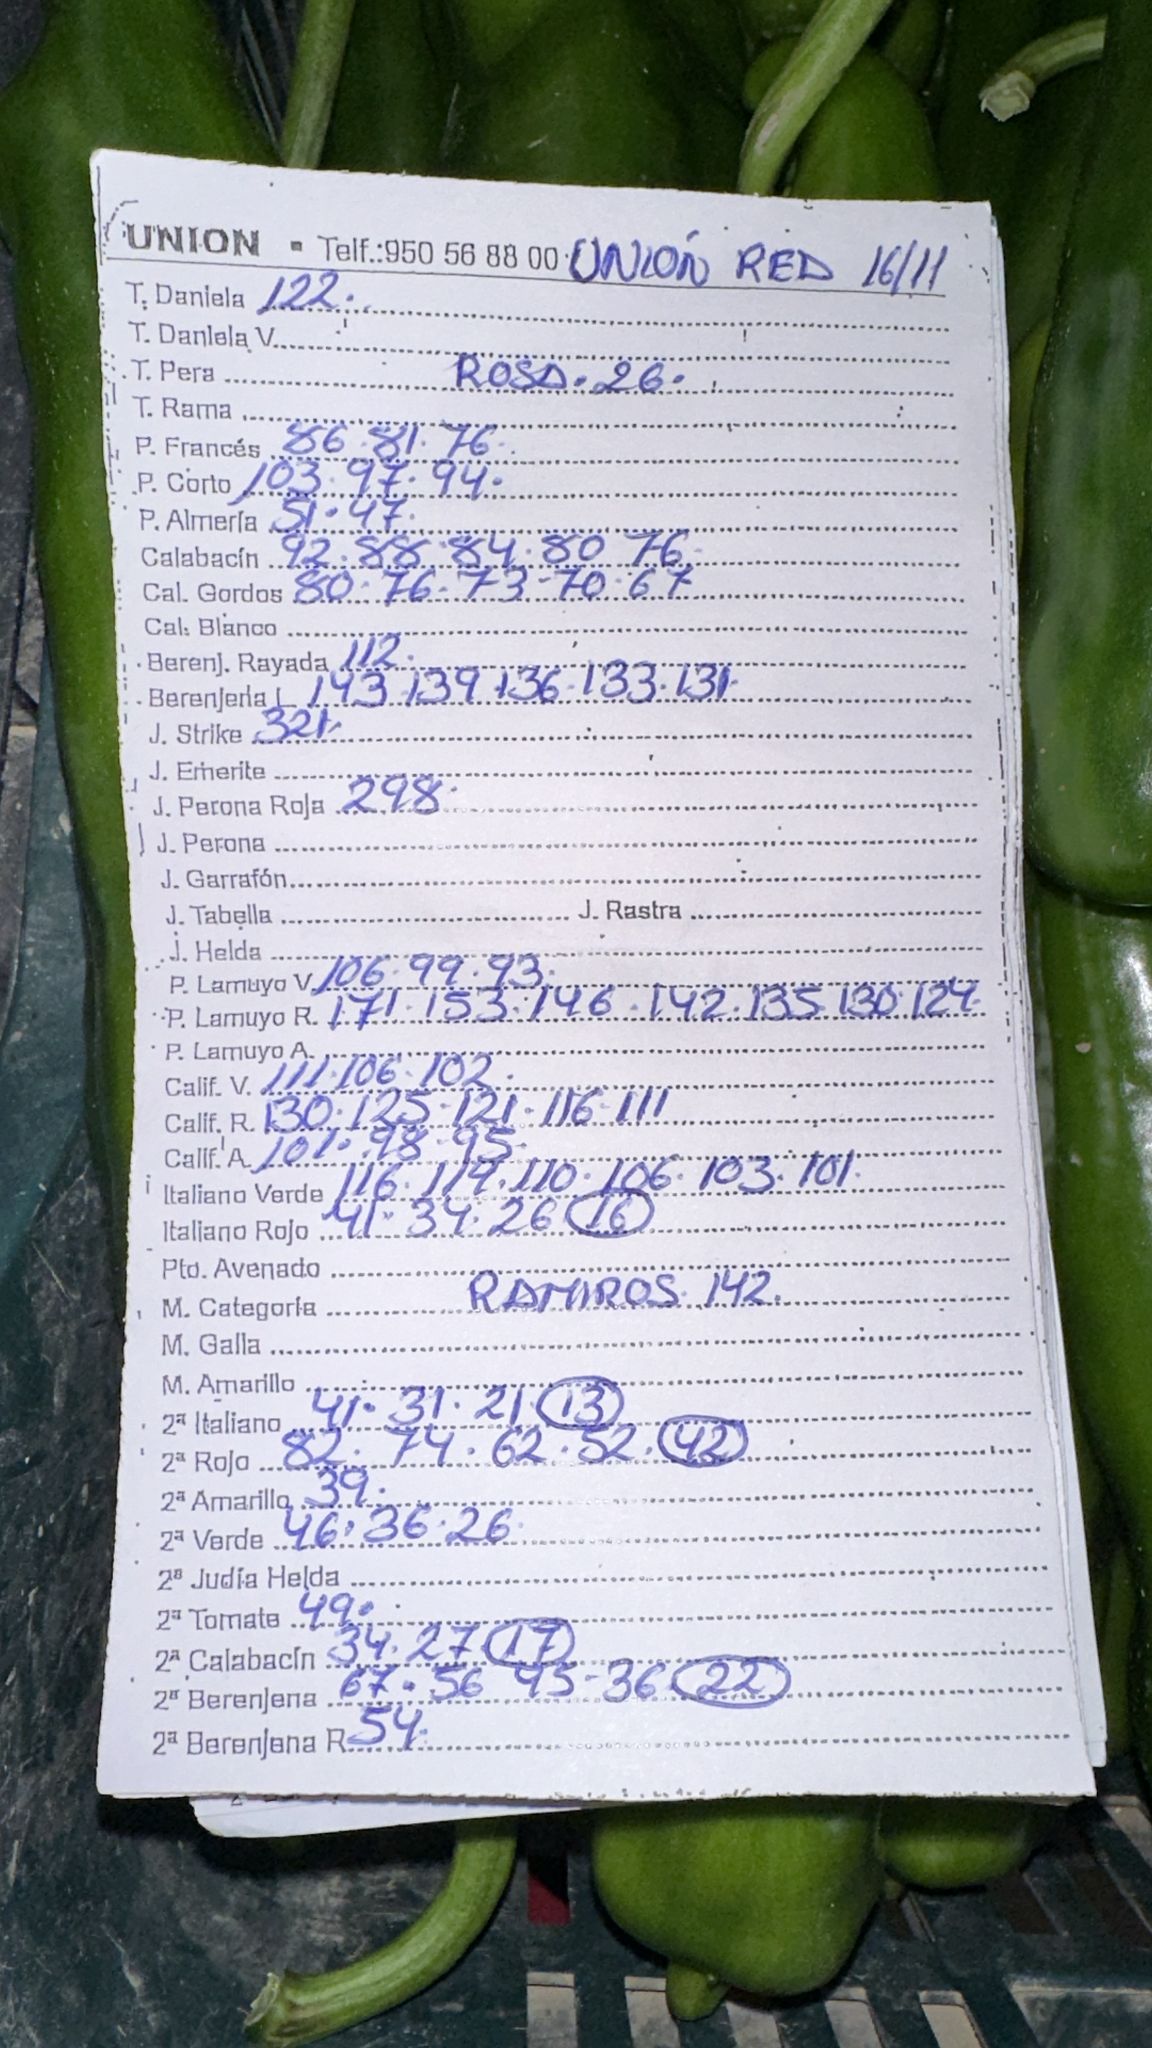 UNION - Telf.:950 56 88 00 UNIÓN RED 16/11
T. Daniela 122.
T. Daniela V.
T. Pera ROSA. 26.
T. Rama
P. Francés 86. 81. 76.
P. Corto 103. 97. 94.
P. Almería 51. 47.
Calabacín 92. 88. 84. 80 76.
Cal. Gordos 80. 76. 73. 70. 67
Cal. Blanco
Berenj. Rayada 112.
Berenjena L 143. 139. 136. 133. 131.
J. Strike 321.
J. Emerite
J. Perona Roja 298.
J. Perona
J. Garrafón
J. Tabella J. Rastra
J. Helda
P. Lamuyo V. 106. 99. 93.
P. Lamuyo R. 171. 153. 146. 142. 135. 130. 124.
P. Lamuyo A.
Calif. V. 111. 106. 102.
Calif. R. 130. 125. 121. 116. 111
Calif. A. 101. 98. 95.
Italiano Verde 116. 114. 110. 106. 103. 101.
Italiano Rojo 41. 34. 26 16
Pto. Avenado
M. Categoría RAMIROS. 142.
M. Galla
M. Amarillo
2ª Italiano 41. 31. 21 13
2ª Rojo 82. 74. 62. 52. 42
2ª Amarillo 39.
2ª Verde 46. 36. 26.
2ª Judía Helda
2ª Tomate 49.
2ª Calabacín 34. 27 17
2ª Berenjena 67. 56 45. 36 22
2ª Berenjena R. 54.